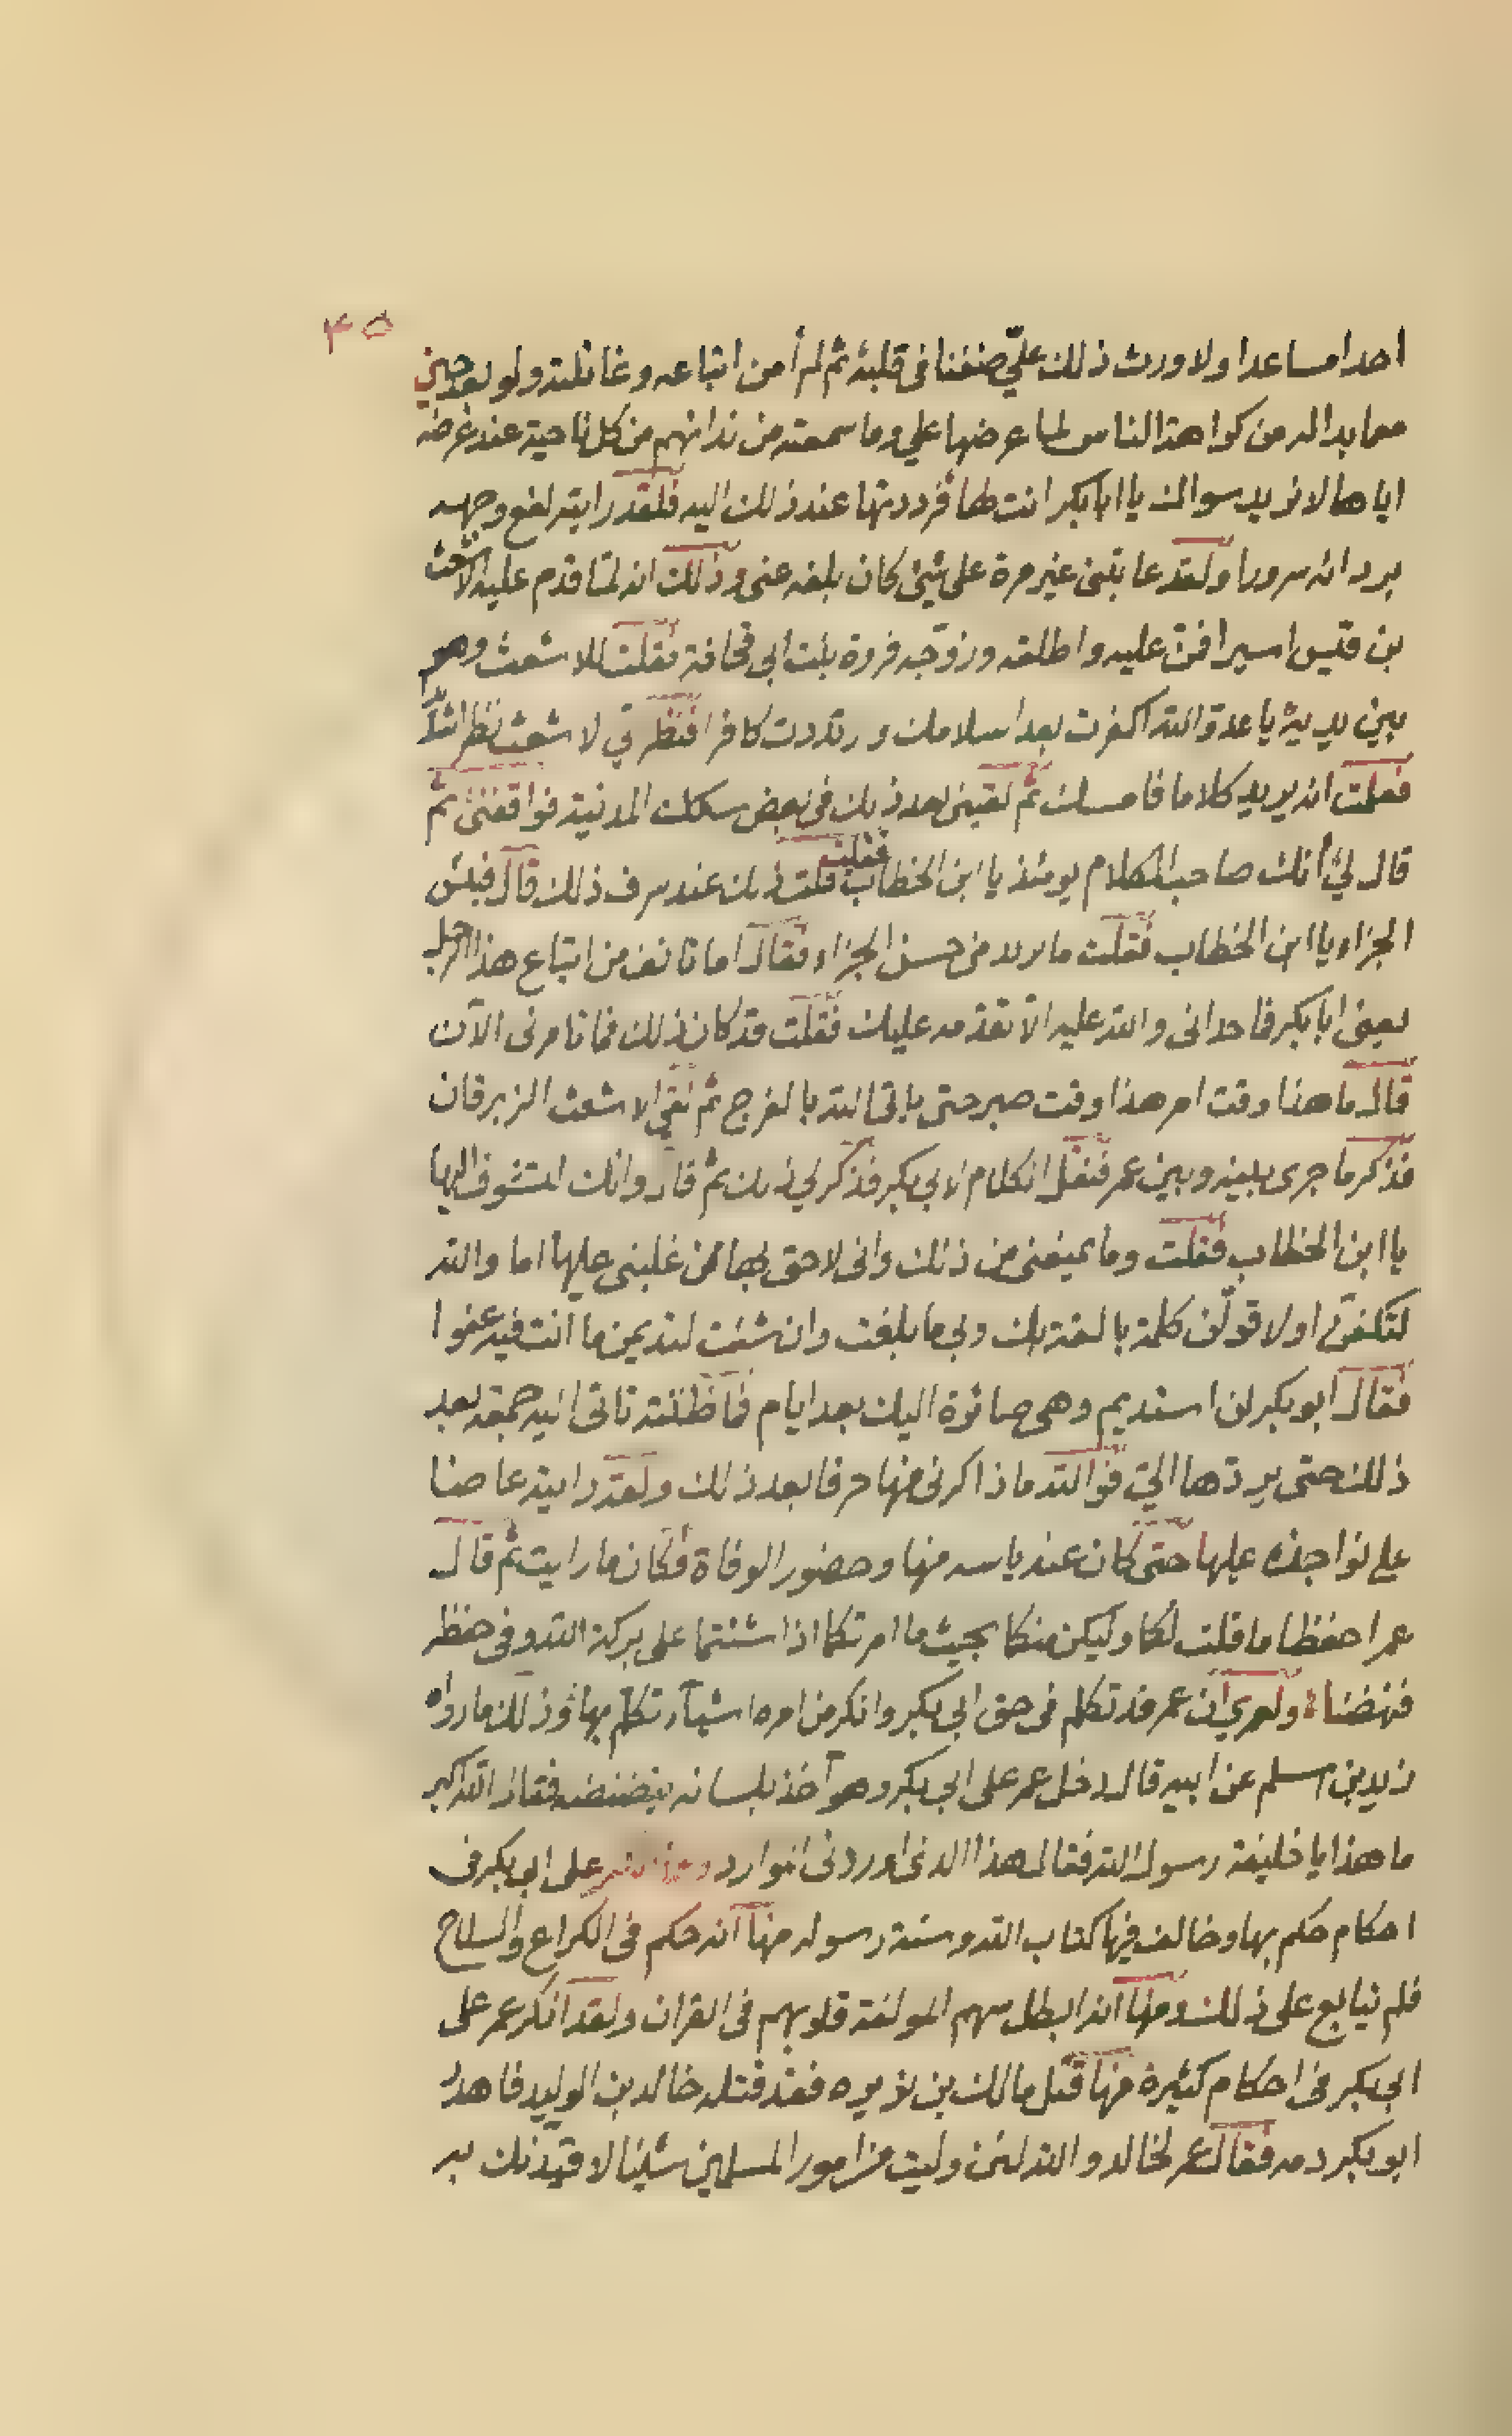 ۳۵
احدا مساعدا ولا ورث ذلك عليّ ضغنا في قلبه ثم لم أمن اتباعه وغائلته ولو بعد حين
مما بدا له من كراهة الناس لما عرضها علي وما سمعته من ندائهم من كل ناحية عند عرضه
اياها لا نريد سواك يا ابا بكر انت لها فرددتها عند ذلك اليه فلقد رايته لفع وجهه
بردائه سرورا ولقد عاتبني غير مرة على شيئ كان بلغه عني وذلك انه لما قدم عليه الاشعث
بن قيس اسيرا فمن عليه واطلقه وزوّجه فروة بنت ابي قحافة فقلت للاشعث وهو
بين يديه يا عدو الله اكفرت بعد اسلامك ورتددت كافرا فنظر الي لاشعث نظرا شذ
فعلمت انه يريد كلاما فامسك ثم لقيني بعد ذلك في بعض سكك المدنية فواقفني ثم
قال لي أنك صاحب الكلام يومئذ يا ابن الخطاب فقلت قلت ذلك عند سرف ذلك قال فبئس
الجزاء يا ابن الخطاب فقلت ما من حسن الجزاء فقال اما تانف من اتباع هذا الرجل
يعني ابا بكر فا والله عليه الا تقدمه عليك فقلت قد كان ذلك فما تامرني الآن
قال ما هذا وقت امر هذا وقت صبر حتى ياتي الله بالفرج ثم لقي الاشعث الزبرقان
فذكر ما جرى بينه وبين عمر فنقل الكلام لابي بكر فذكر لي ذلك ثم قال وانك لمتشوف اليها
يا ابن الخطاب فقلت وما يمنعني من ذلك واني لاحق بها ممن غلبني عليها اما والله
لتكفن او لاقولن كلمة بالغة بك وبي ما بلغت وان شئت لتديمن ما انت فيه عفوا
فقال ابو بكر لن استديم وهي صائرة اليك بعد ايام فما ظننته تاتي اليه جمعة بعد
ذلك حتى يردها اليّ فوالله ما ذاكرني منها حرفا بعد ذلك ولقد رايته عاضا
على نواجذه عليها حتى كان عند ياسه منها وحضور الوفاة فكان ما رايت ثم قال
عمر احفظا ما قلت لكما وليكن منكما بحيث ما امرتكما اذا شئتما على بركة الله وفي حفظه
فنهضنا ولعمري ان عمر قد تكلم في حق ابي بكر وانكر من امره اشياء تكلم بها وذلك ما رواه
زيد بن اسلم عن ابيه قال دخل عمر على ابي بكر وهو آخذ بلسانه ينضنضه فقال الله اكبر
ما هذا يا خليفة رسول الله فقال هذا الذي اوردني الموارد على ابو بكر في
احكام حكم بها وخالف فيها كتاب الله وسنة رسوله منها انه حكم في الكراع والسلاح
فلم يتابع على ذلك ومنها انه ابطل سهم المولفة قلوبهم في القران ولقد انكر عمر على
ابي بكر في احكام كثيرة منها قتل مالك بن نويره فقد قتله خالد بن الوليد فاهدر
ابو بكر دمه فقال عمر لخالد والله لئن وليت من امور المسلمين شيئا لاقيدنك به